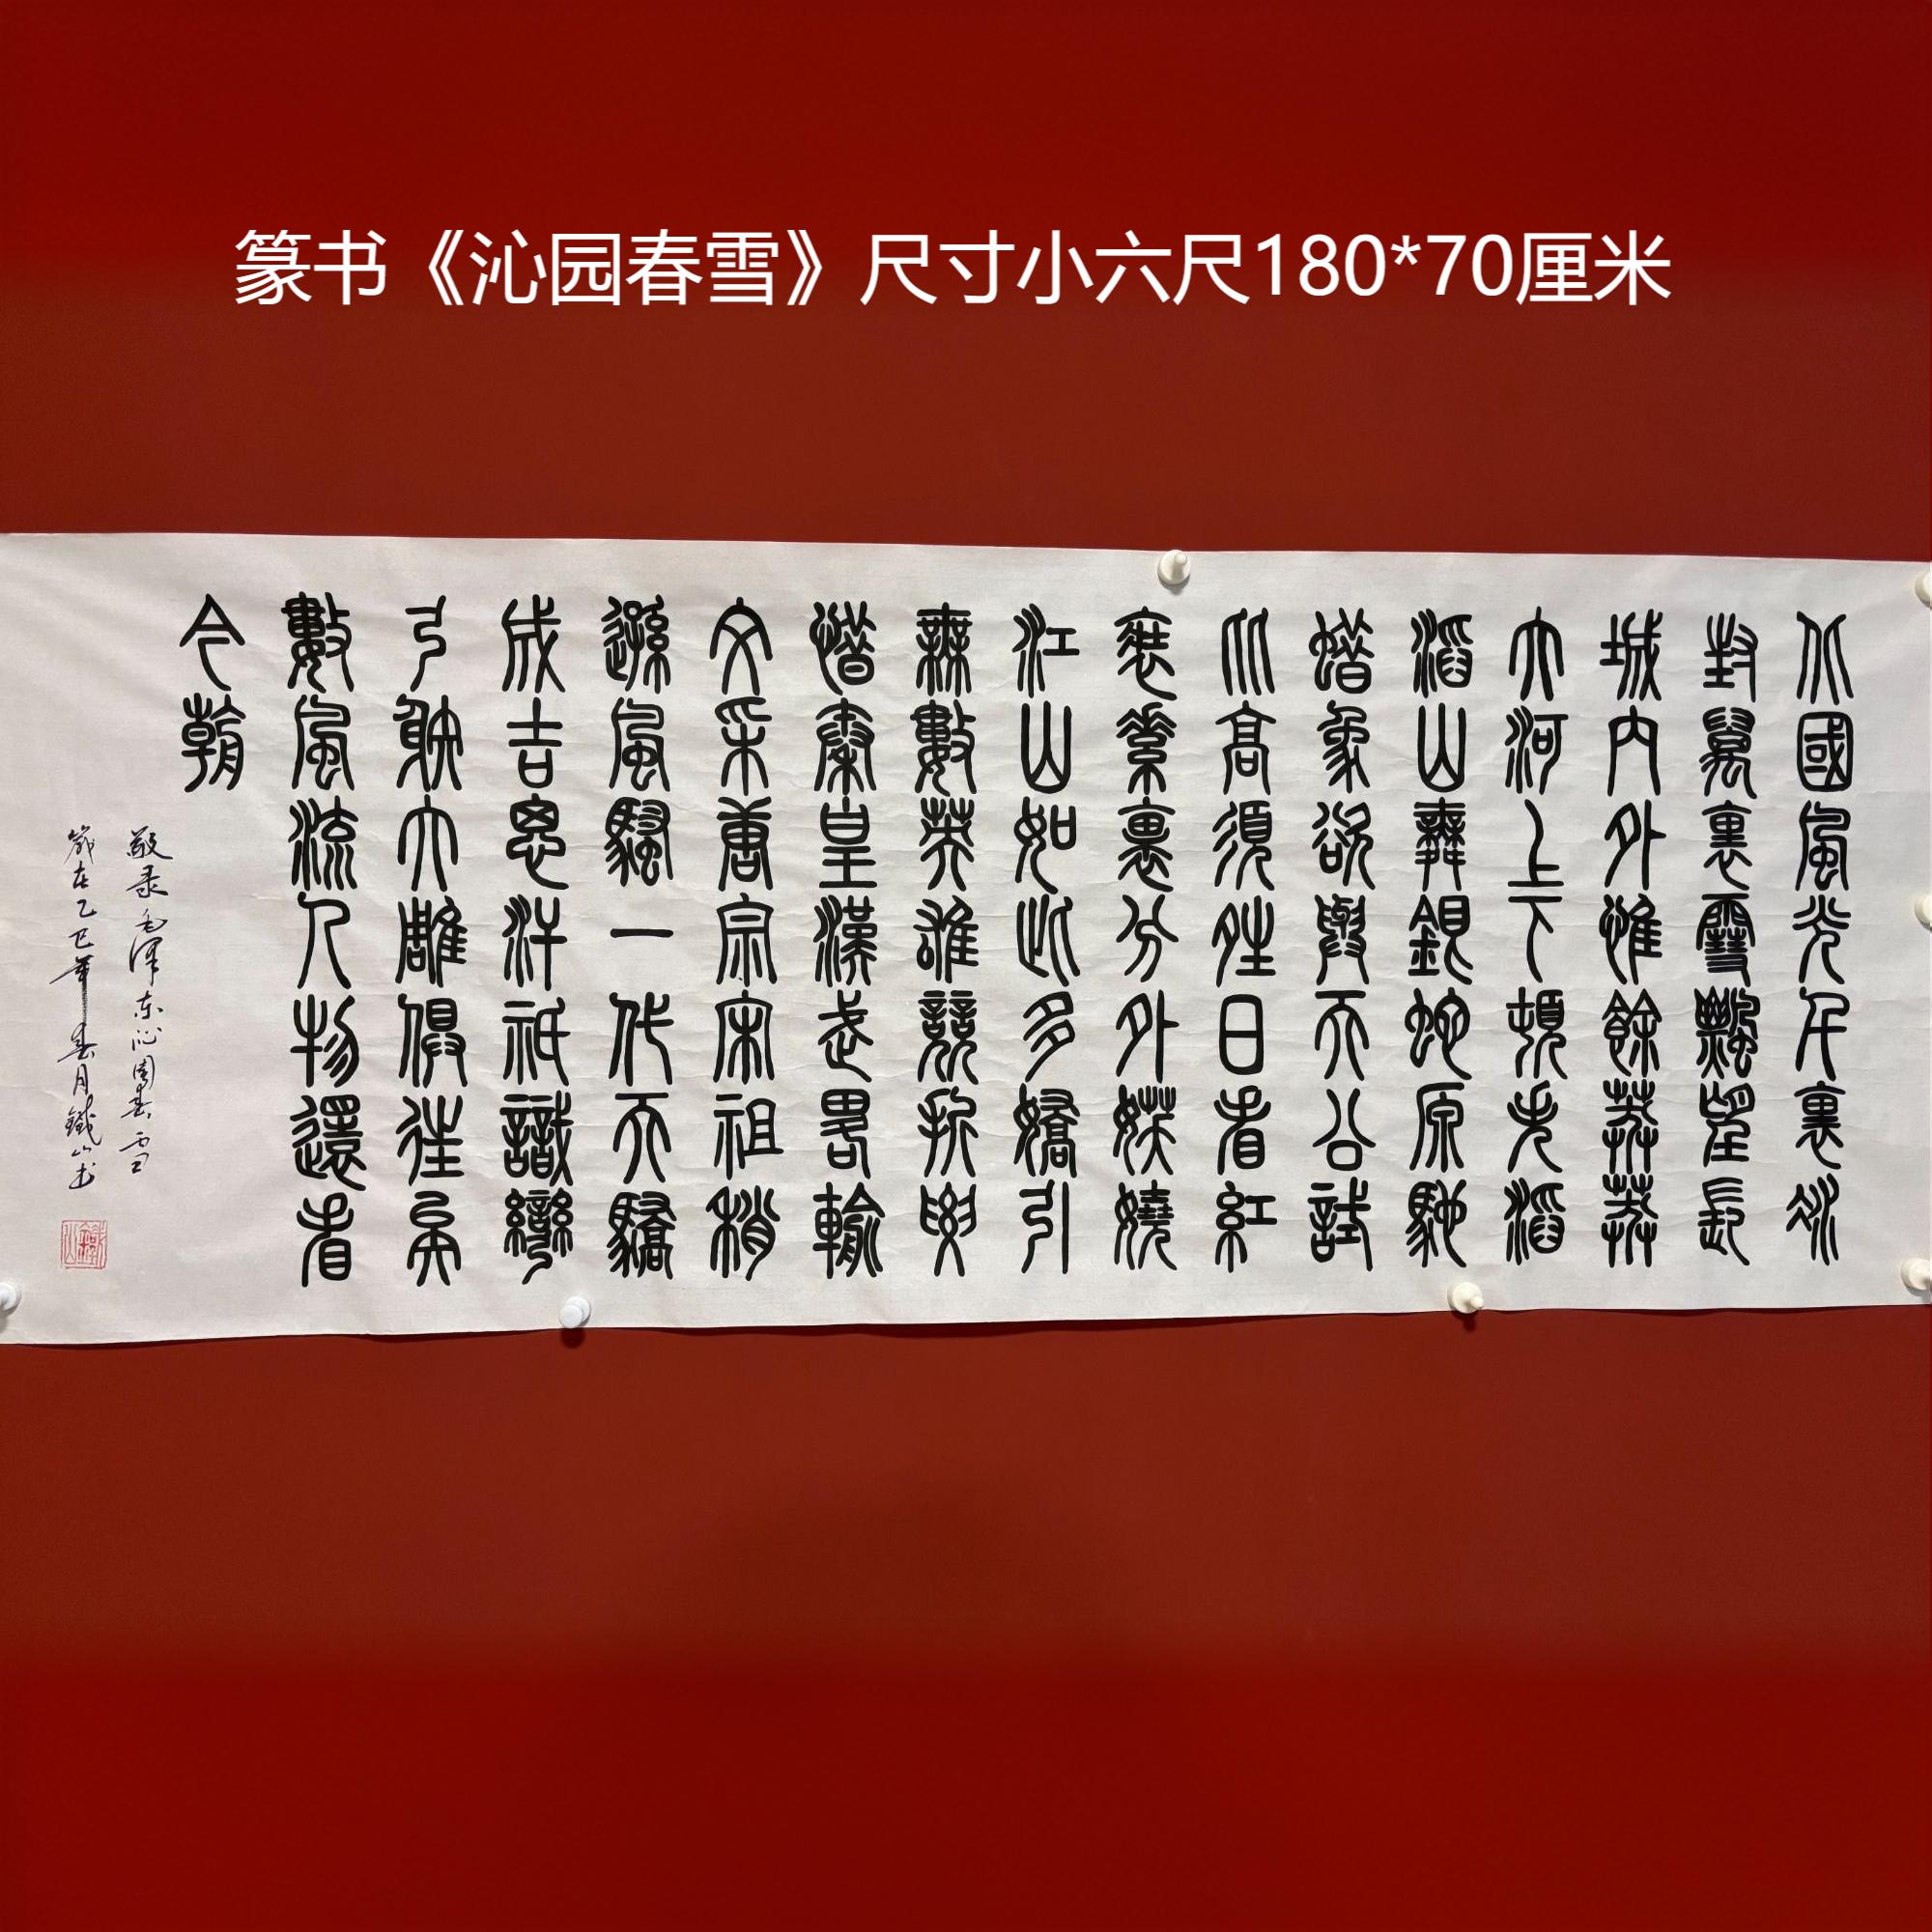 篆书《沁园春雪》尺寸小六尺180*70厘米
北國風光千裏冰
封萬裏雪飄望長
城內外惟餘莽莽
大河上下頓失滔
滔山舞銀蛇原馳
蠟象欲與天公試
比高須晴日看紅
裝素裹分外妖嬈
江山如此多嬌引
無數英雄競折腰
惜秦皇漢武略輸
文采唐宗宋祖稍
遜風騷一代天驕
成吉思汗祇識彎
弓射大雕俱往矣
數風流人物還看
今朝
敬录毛泽东沁園春雪
歲在乙巳年春月鐵山书